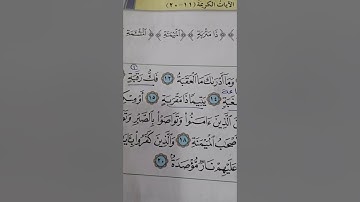 الآيات الكريمة (١١-٢٠)
﴿ذَا مَقْرَبَةٍ﴾ ﴿الْمَيْمَنَةِ﴾ ﴿الْمَشْأَمَةِ﴾
وَمَآ أَدْرَىٰكَ مَا ٱلْعَقَبَةُ ١٢ فَكُّ رَقَبَةٍ
١٤ يَتِيمًا ذَا مَقْرَبَةٍ ١٥ أَوْ
ٱلَّذِينَ ءَامَنُوا۟ وَتَوَاصَوْا۟ بِٱلصَّبْرِ
أَصْحَٰبُ ٱلْمَيْمَنَةِ ١٨ وَٱلَّذِينَ كَفَرُوا۟
عَلَيْهِمْ نَارٌ مُّؤْصَدَةٌۢ ٢٠